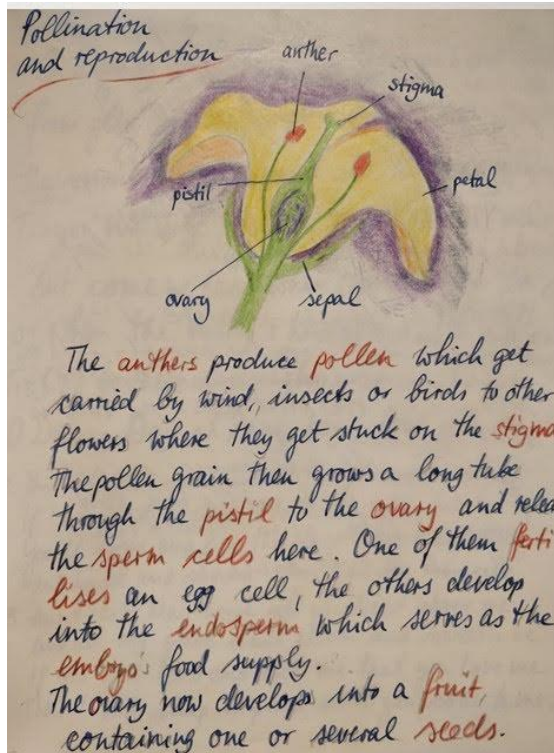 Pollination
and reproduction
anther
stigma
pistil
petal
ovary
sepal
The anthers produce pollen which get
carried by wind, insects or birds to other
flowers where they get stuck on the stigma
The pollen grain then grows a long tube
through the pistil to the ovary and relea
the sperm cells here. One of them ferti
lises an egg cell, the others develop
into the endosperm which serves as the
embryo's food supply.
The ovary now develops into a fruit,
containing one or several seeds.